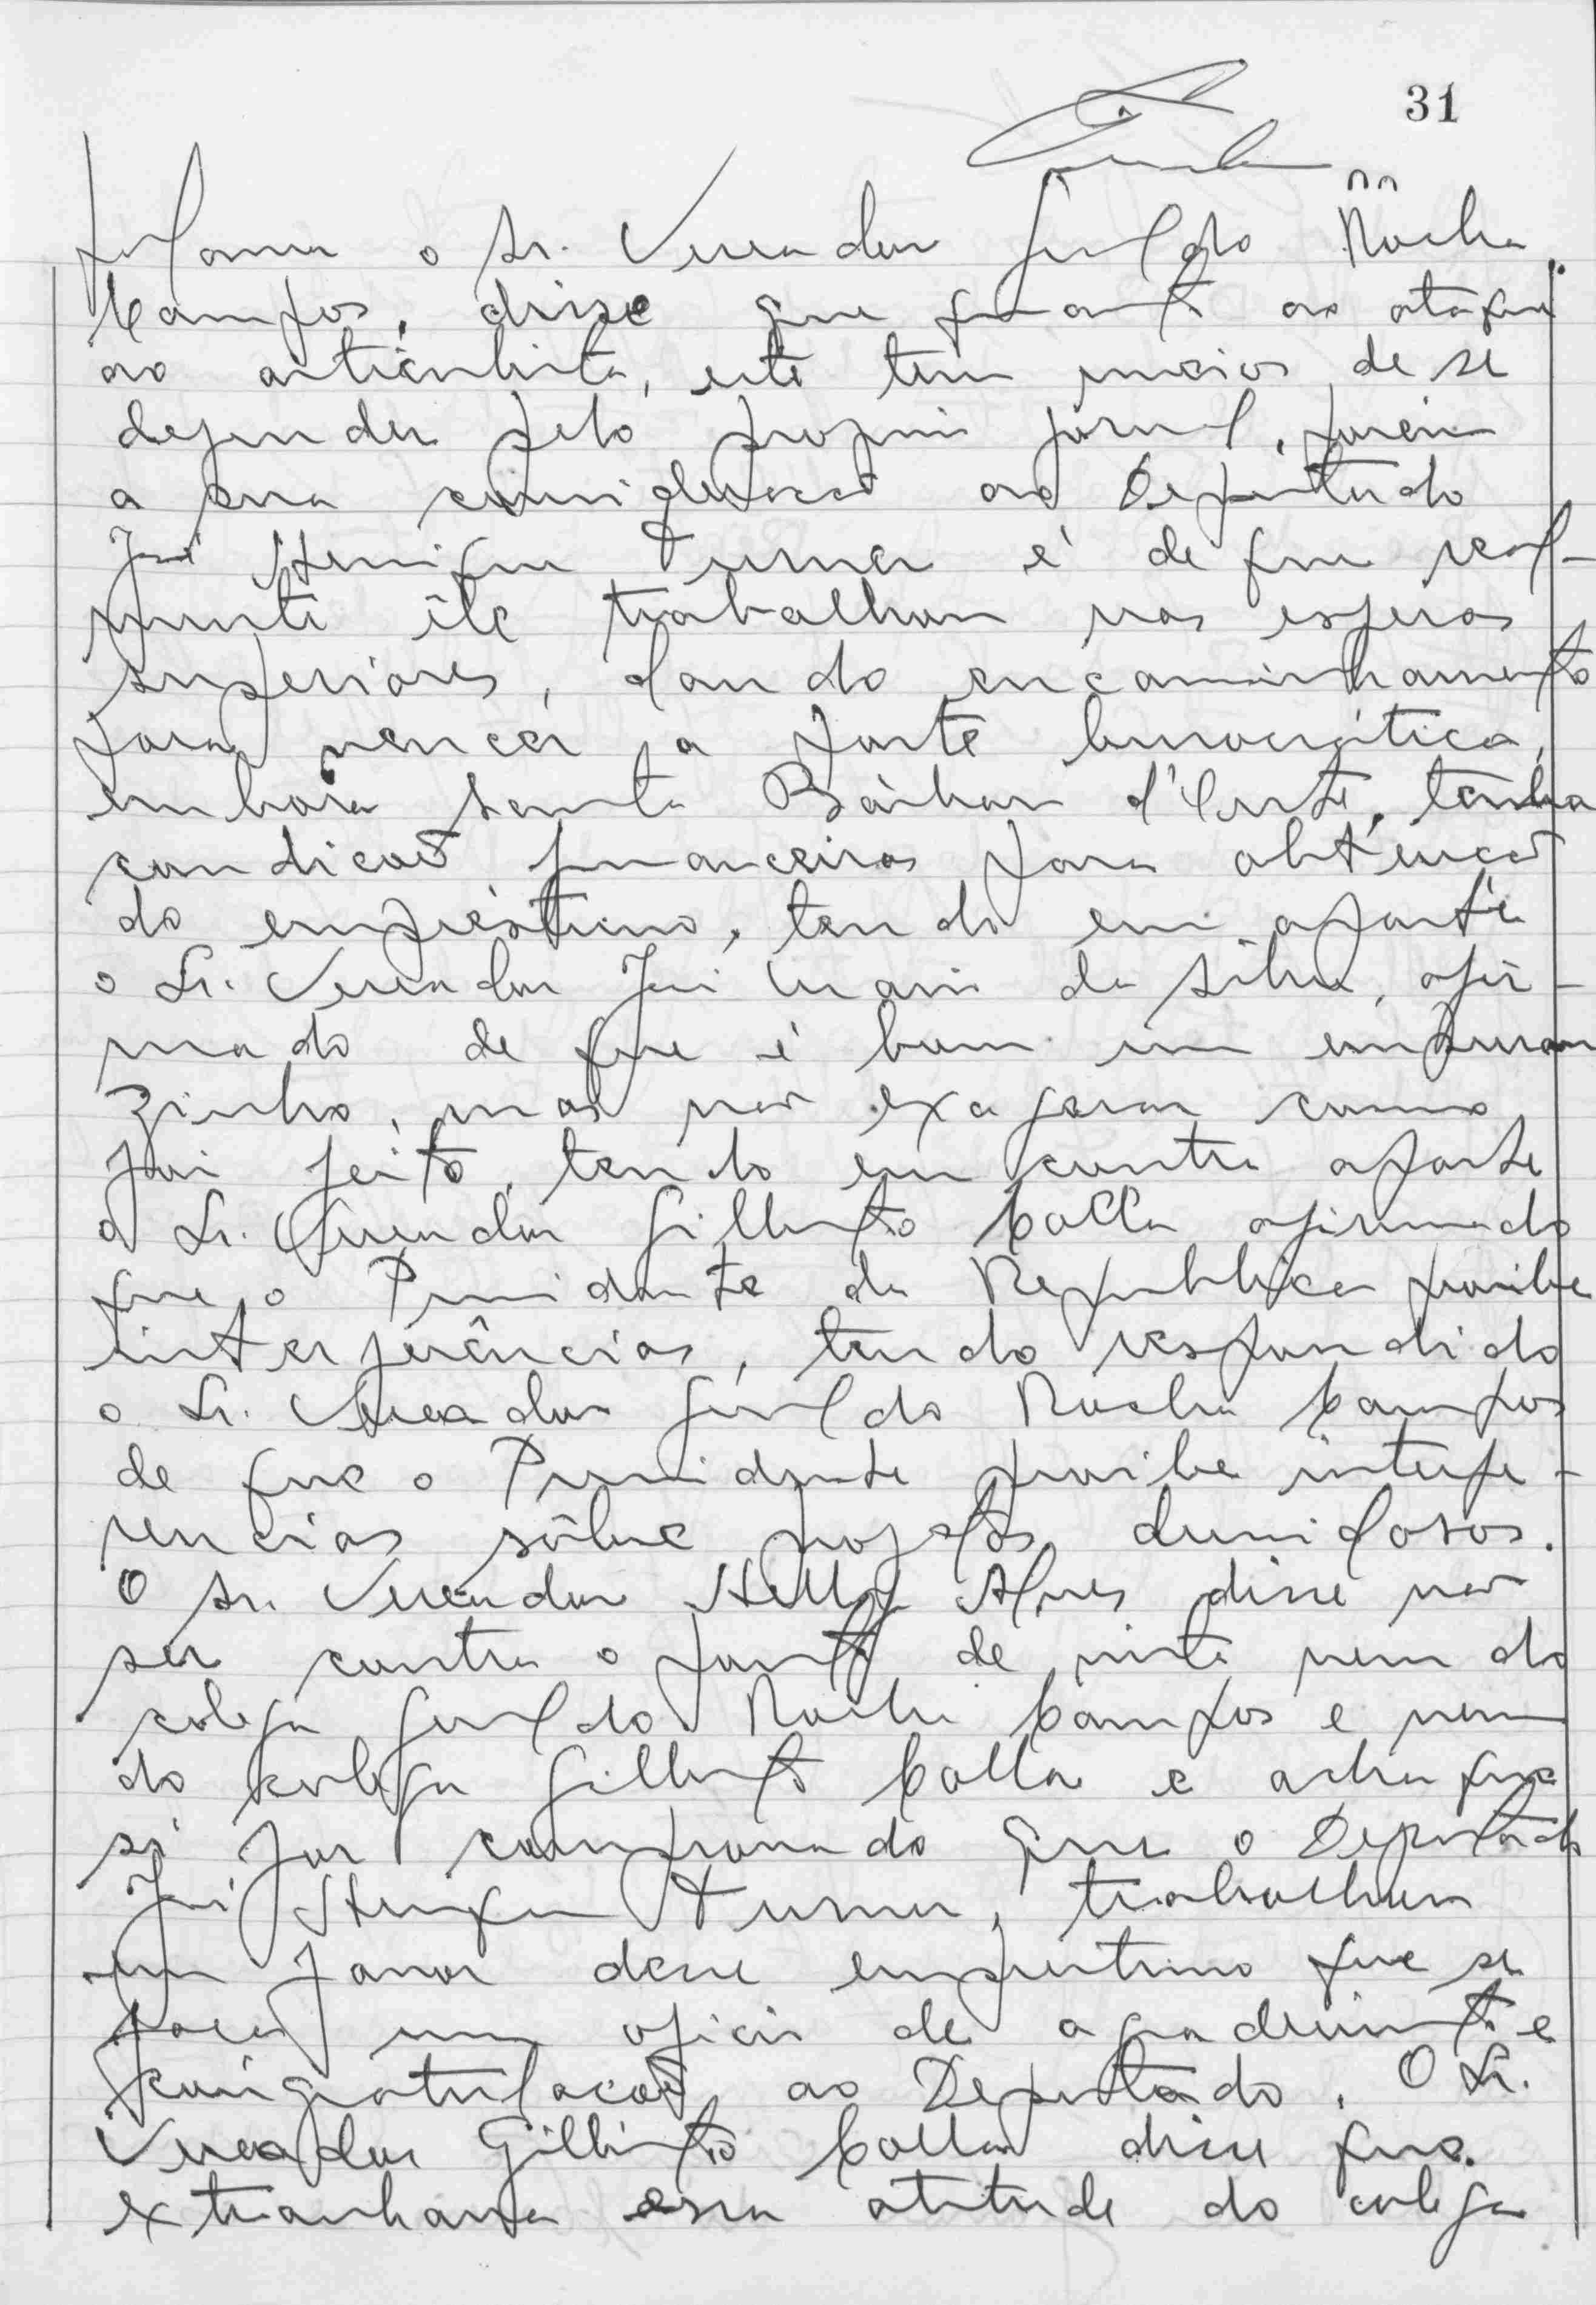 31
o Sr. Vereador Geraldo Rocha
Campos, disse que quanto ao ataque
ao articulista, este tem meios de se
defender pelo proprio jornal, porém
a sua consideracao ao Deputado
José Henrique Turner é de que real-
mente êle trabalhou nas esferas
superiores, dando encaminhamento
para vencer a parte burocrática,
embora Santa Bárbara d'Oeste, tenha
condicoes financeiras para obtencao
do empréstimo, tendo em aparte
o Sr. Vereador José Maria da Silva, afir-
mado de que é bom um empurran
zinho, mas nao exagerar como
foi feito, tendo em contra aparte
o Sr. Vereador Gilberto Colla afirmado
que o Presidente da Republica proibe
interferências, tendo respondido
o Sr. Vereador Geraldo Rocha Campos
de que o Presidente proibe interfe-
rencias sôbre projetos
O Sr. Vereador Alves disse nao
ser contra o ponto de vista nem do
colega Geraldo Rocha Campos e nem
do colega Gilberto Colla e acha que
si for comprovado que o Deputado
José Henrique Turner, trabalhou
em favor desse emprestimo que se
faca um oficio de agradecimento e
congratulacoes ao Deputado. O Sr.
Vereador Gilberto Colla disse que
extranhava essa atitude do colega